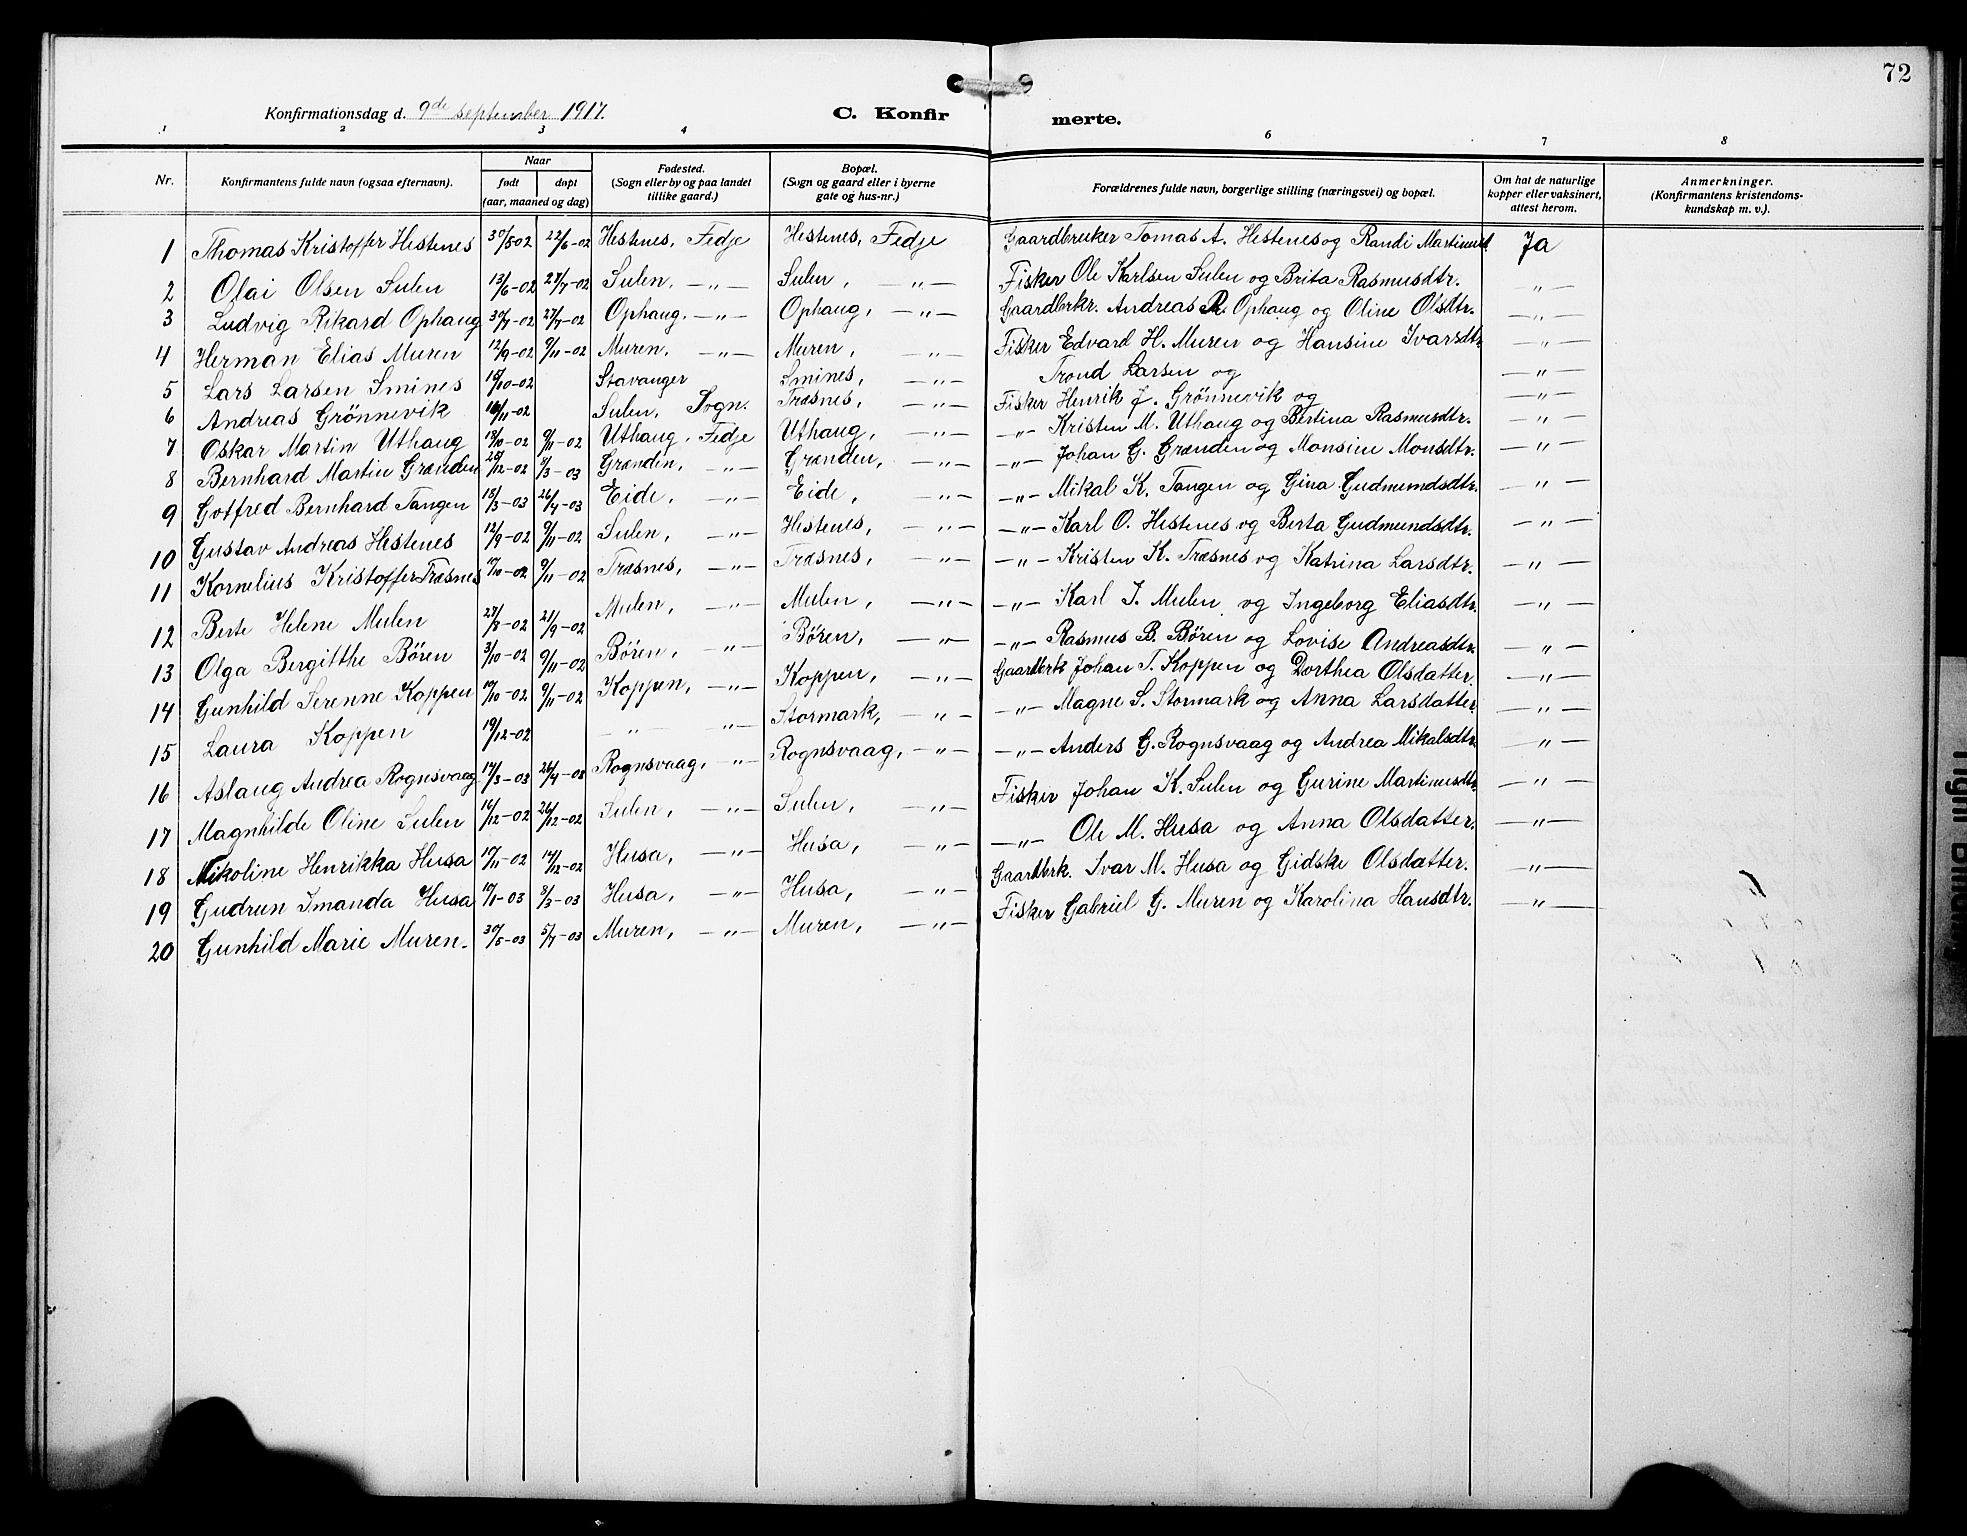 72
Konfirmationsdag d. 9de september 1917.
C. Konfirmerte.
1 2 3 4 6 7 8
Nr. Konfirmantens fulde navn (ogsaa efternavn). Naar født døpt (aar, maaned og dag) Fødested. (Sogn eller by og paa landet tillike gaard.) Bopæl. (Sogn og gaard eller i byerne gate og hus-nr.) Forældrenes fulde navn, borgerlige stilling (næringsvei) og bopæl. Om hat de naturlige kopper eller vaksinert, attest herom. Anmerkninger. (Konfirmantens kristendomskundskap m. v.).
1 Thomas Kristoffer Hestenes 30/5 02 22/6-02 Hestenes, Fedje Hestenes, Fedje Gaardbruker Tomas A. Hestenes og Randi Martinusd. Ja
2 Olai Olsen Sulen 13/6-02 27/7-02 Sulen, —"— Sulen, —"— Fisker Ole Karlsen Sulen og Brita Rasmusdtr. —"—
3 Ludvig Rikard Ophaug 30/7-02 27/7-02 Ophaug, —"— Ophaug, —"— Gaardbrkr. Andreas R. Ophaug og Oline Olsdtr. —"—
4 Herman Elias Muren 12/9-02 9/11-02 Muren, —"— Muren, —"— Fisker Edvard H. Muren og Hansine Ivarsdtr. —"—
5 Lars Larsen Smines /10-02 Stavanger Smines, —"— Trond Larsen og —"—
6 Andreas Grönnevik /11-02 Sulen, Sogn. Træsnes, —"— Fisker Henrik J. Grönnevik og —"—
7 Oskar Martin Uthaug 18/10-02 9/11-02 Uthaug, Fedje Uthaug, —"— —"— Kristen M. Uthaug og Bertina Rasmusdtr. —"—
8 Bernhard Martin Grænden /12-02 8/3-03 Grænden, —"— Grænden, —"— —"— Johan G. Grænden og Monsine Monsdtr. —"—
9 Gotfred Bernhard Tangen 15/3-03 26/4-03 Eide, —"— Eide, —"— —"— Mikal K. Tangen og Gina Gudmundsdtr. —"—
10 Gustav Andreas Hestenes 12/9-02 9/11-02 Sulen, —"— Hestenes, —"— —"— Karl O. Hestenes og Berta Gudmundsdtr. —"—
11 Kornelius Kristoffer Træsnes 17/10-02 9/11-02 Træsnes, —"— Træsnes, —"— —"— Kristen K. Træsnes og Katrina Larsdtr. —"—
12 Berte Helene Mulen 27/8-02 21/9-02 Mulen, —"— Mulen, —"— —"— Karl J. Mulen og Ingeborg Eliasdtr. —"—
13 Olga Bergitthe Bören 3/10-02 9/11-02 Bören, —"— Bören, —"— —"— Rasmus B. Bören og Lovise Andreasdtr. —"—
14 Gunhild Serenne Koppen 17/10-02 9/11-02 Koppen, —"— Koppen, —"— Gaardbrk Johan T. Koppen og Dorthea Olsdatter. —"—
15 Laura Koppen 19/12-02 —"— —"— Stormark, —"— —"— Magne S. Stormark og Anna Larsdatter —"—
16 Aslaug Andrea Rognsvaag 14/3-03 26/4-03 Rognsvaag, —"— Rognsvaag, —"— —"— Anders G. Rognsvaag og Andrea Mikalsdtr. —"—
17 Magnhilde Oline Sulen 16/12-02 26/12-02 Sulen, —"— Sulen, —"— Fisker Johan K. Sulen og Gurine Martinusdtr. —"—
18 Nikoline Henrikka Husa 17/11-02 14/12-02 Husa, —"— Husa, —"— —"— Ole M. Husa og Anna Olsdatter. —"—
19 Gudrun Imanda Husa 17/1-03 8/3-03 Husa, —"— Husa, —"— Gaardbrk. Ivar M. Husa og Gidske Olsdatter. —"—
20 Gunhild Marie Muren. 30/5-03 5/7-03 Muren, —"— Muren, —"— Fisker Gabriel G. Muren og Karolina Hansdtr. —"—